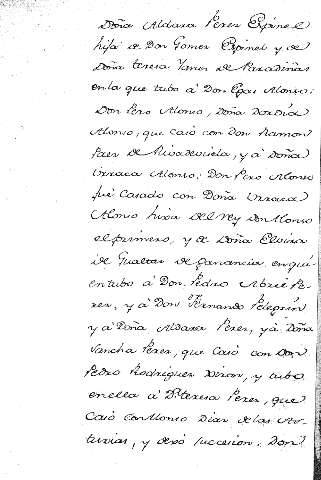 Doña Aldara Perez Espinel
hija de Don Gomez Espinel y de
Doña teresa Yanes de Paradiñas
en la que tubo á Don Egas Alonso:
Don Pero Alonso, Doña Dordia
Alonso, que Casó con Don Ramon
Paez de Rivadevicela, y á Doña
Urraca Alonso: Don Pero Alonso
fué Casado con Doña Urraca
Alonso hixa del Rey Don Alonso
el primero, y de Doña Elvira
de Gualtar de ganancia, en qui-
en tubo á Don Pedro Abril Pe-
rez, y á Don Fernando Pelegrin
y á Doña Aldara Perez, yá Doña
Sancha Perez, que Casó con Don
Pedro Rodriguez Xiron, y tubo
en ella á D.ª teresa Perez, que
Casó con Alonso Diaz de las As-
turias, y dexó succesion: Don